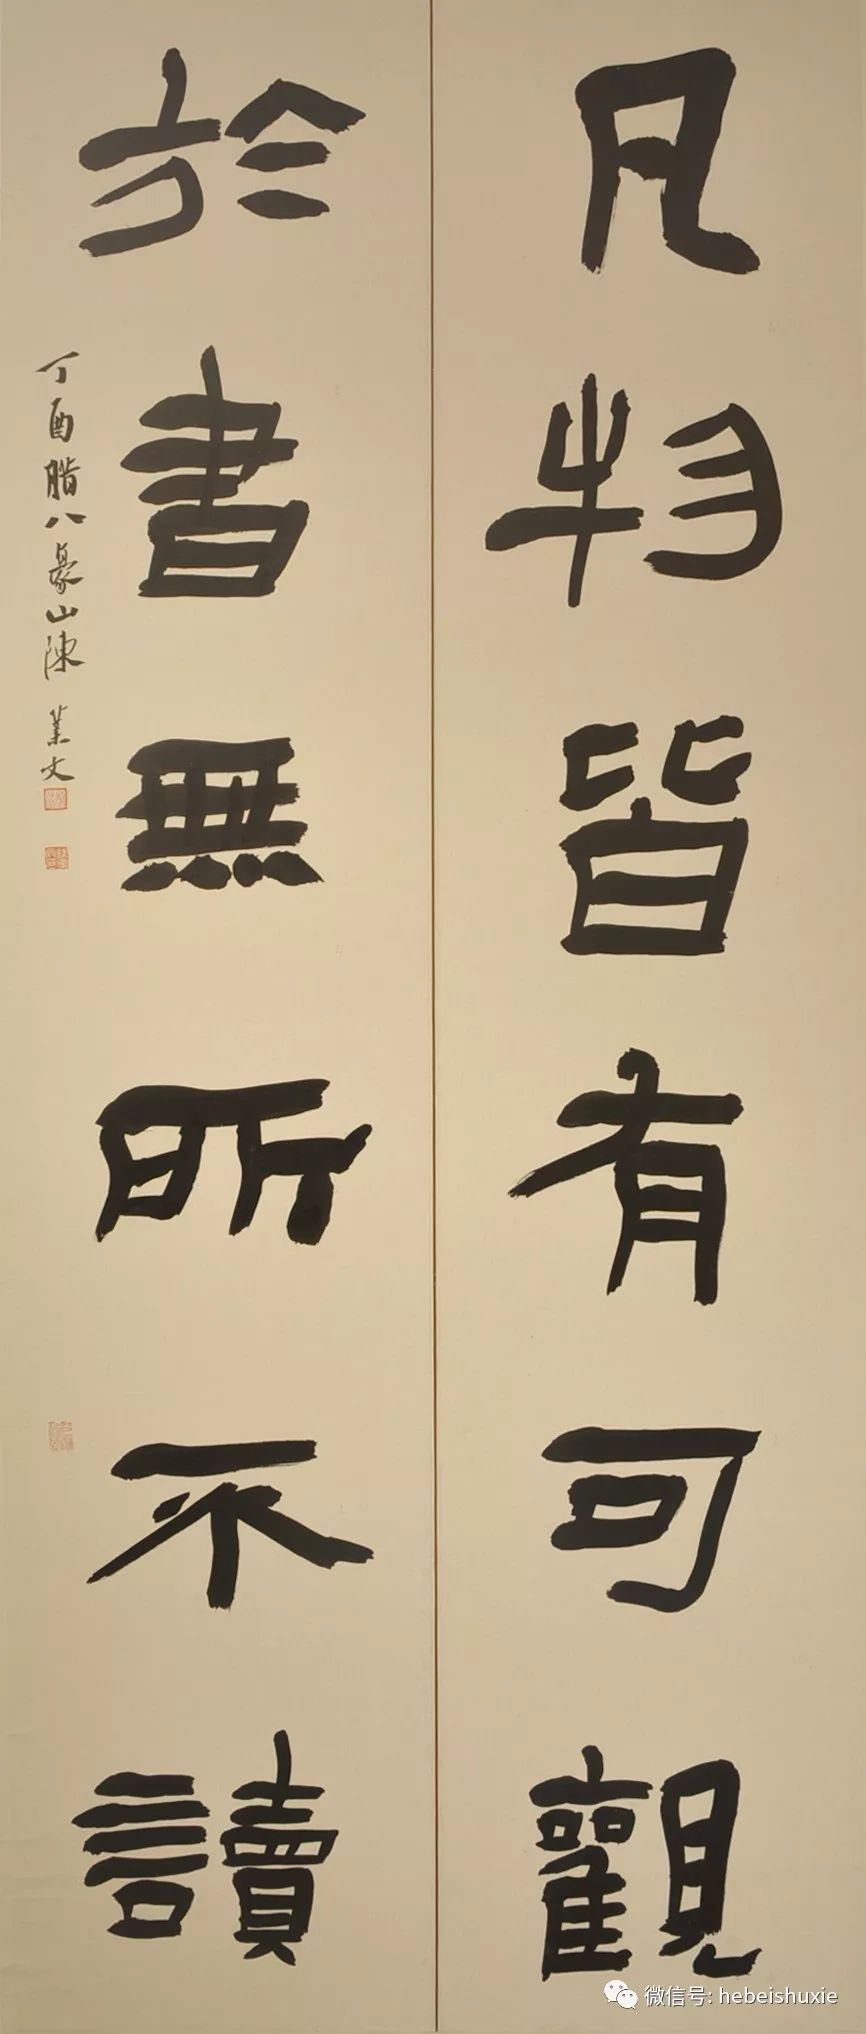 凡物皆有可觀
於書無所不讀
丁酉腊八象山陳業文
微信号: hebeishuxie